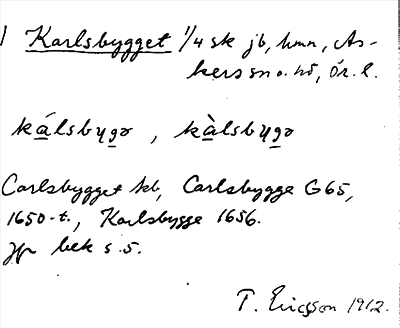 1 Karlsbygget 1/4 sk jb, hmn, As-
kers sn o. hd, Ör. l.
kálsbyg̲ə, kàlsbyg̲ə
Carlsbygget kb, Carlsbygge G65,
1650-t., Karlsbygge 1656.
Jfr bek s. 5.
T. Ericsson 1912.